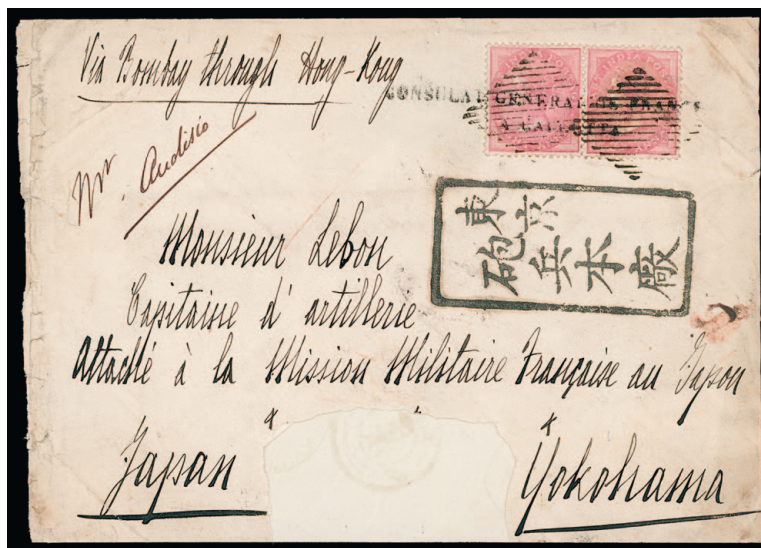 Via Bombay through Hong-Kong
CONSULAT GENERAL DE FRANCE
A CALCUTTA
Mr. Audisio
東京
砲兵本廠
Monsieur Lebon
Capitaine d'artillerie
Attaché à la Mission Militaire Française au Japon
Japan
Yokohama